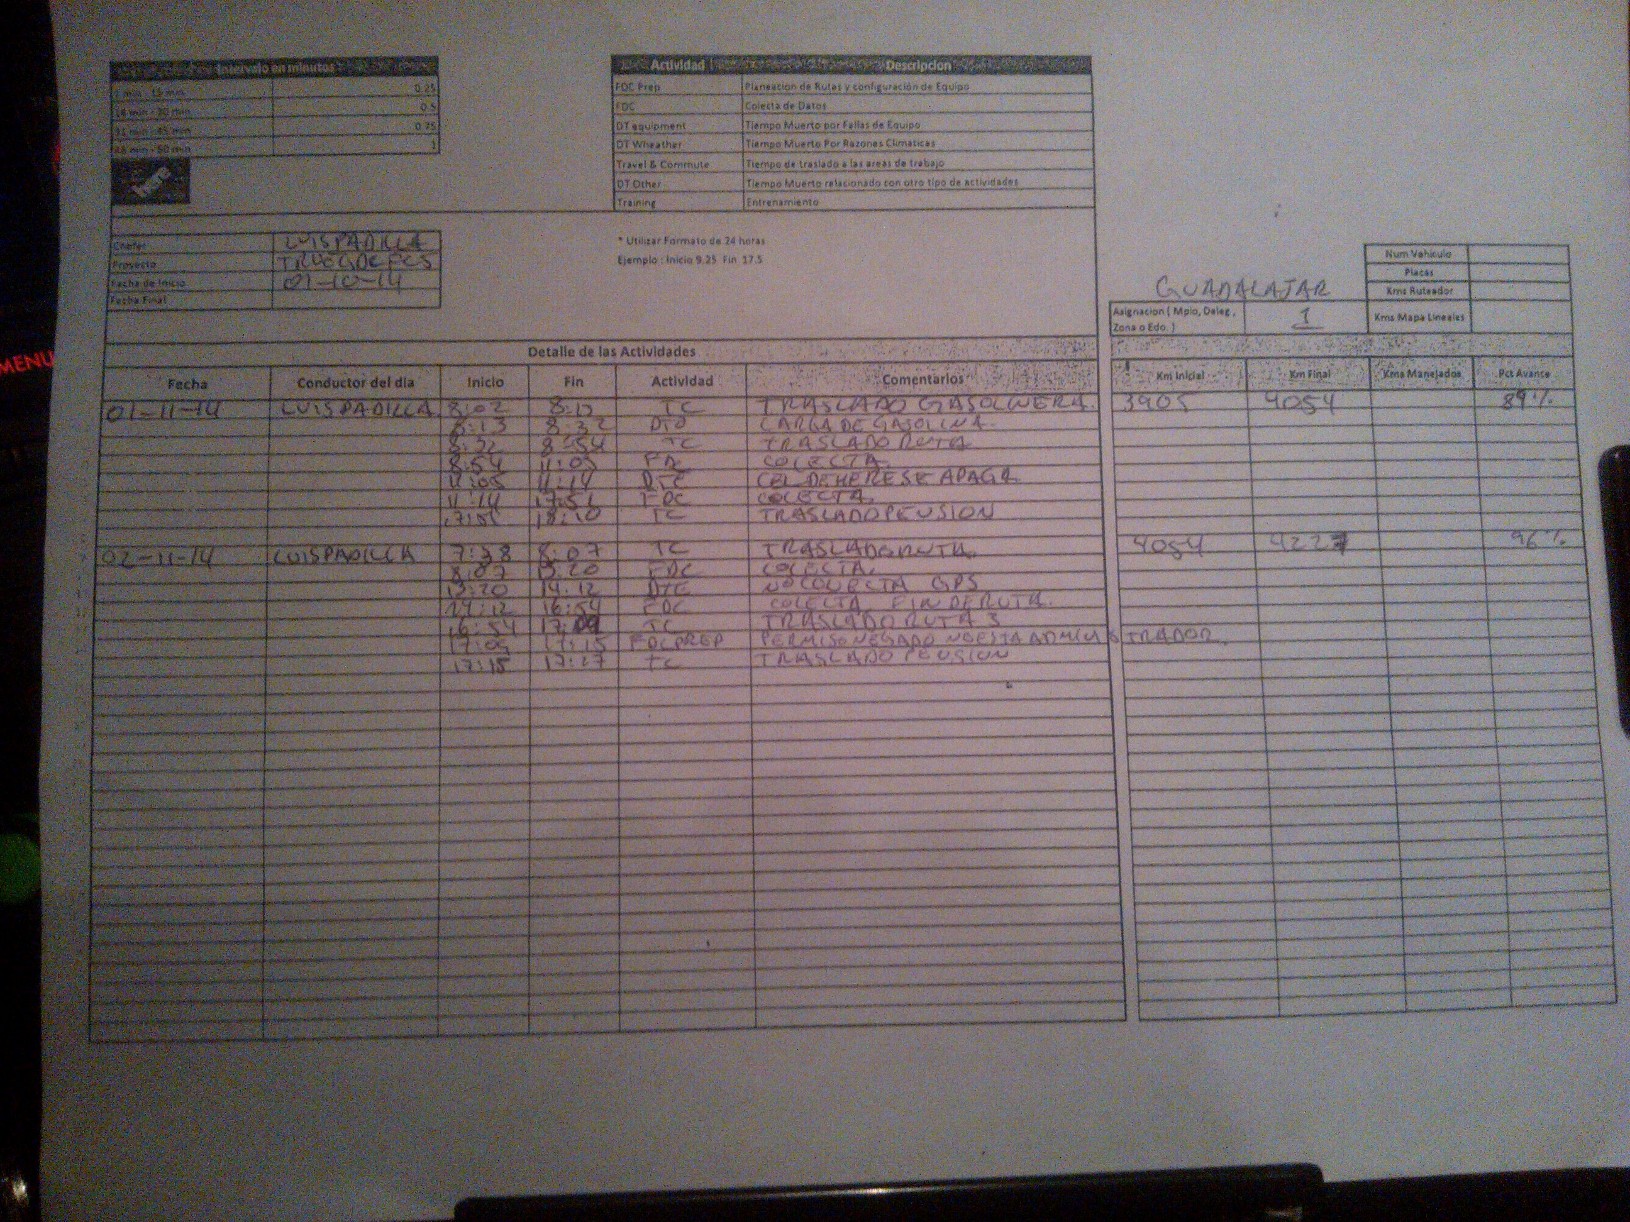 Intervalo en minutos
1 min - 15 min 0.25
16 min - 30 min 0.5
31 min - 45 min 0.75
46 min - 60 min 1
here
Actividad Descripcion
FDC Prep Planeacion de Rutas y configuración de Equipo
FDC Colecta de Datos
DT equipment Tiempo Muerto por Fallas de Equipo
DT Wheather Tiempo Muerto Por Razones Climaticas
Travel & Commute Tiempo de traslado a las areas de trabajo
DT Other Tiempo Muerto relacionado con otro tipo de actividades
Training Entrenamiento
Chofer LUIS PADILLA
Proyecto
Fecha de Inicio 01-10-14
Fecha Final
* Utilizar Formato de 24 horas
Ejemplo : Inicio 9.25 Fin 17.5
GUADALAJAR
Asignacion ( Mpio, Deleg ,
Zona o Edo. ) 1
Num Vehiculo
Placas
Kms Ruteador
Kms Mapa Lineales
Detalle de las Actividades
Fecha Conductor del dia Inicio Fin Actividad Comentarios Km Inicial Km Final Kms Manejados Pct Avance
01-11-14 LUIS PADILLA 8:02 8:13 TC TRASLADO GASOLINERA 3905 4054 89%
8:13 8:32 DTO CARGA DE GASOLINA
8:32 8:54 TC TRASLADO RUTA
8:54 11:05 FDC COLECTA
11:05 11:14 DTE CEL DE HERE SE APAGA
11:14 17:51 FDC COLECTA
17:51 18:10 TC TRASLADO PENSION
02-11-14 LUIS PADILLA 7:38 8:07 TC TRASLADO RUTA 4054 4227 96%
8:07 13:20 FDC COLECTA
13:20 14:12 DTE NO CONECTA GPS
14:12 16:54 FDC COLECTA FIN DE RUTA
16:54 17:09 TC TRASLADO RUTA 3
17:09 17:15 FDCPREP PERMISO NEGADO NO ESTA ADMINISTRADOR
17:15 17:27 TC TRASLADO PENSION
MENU